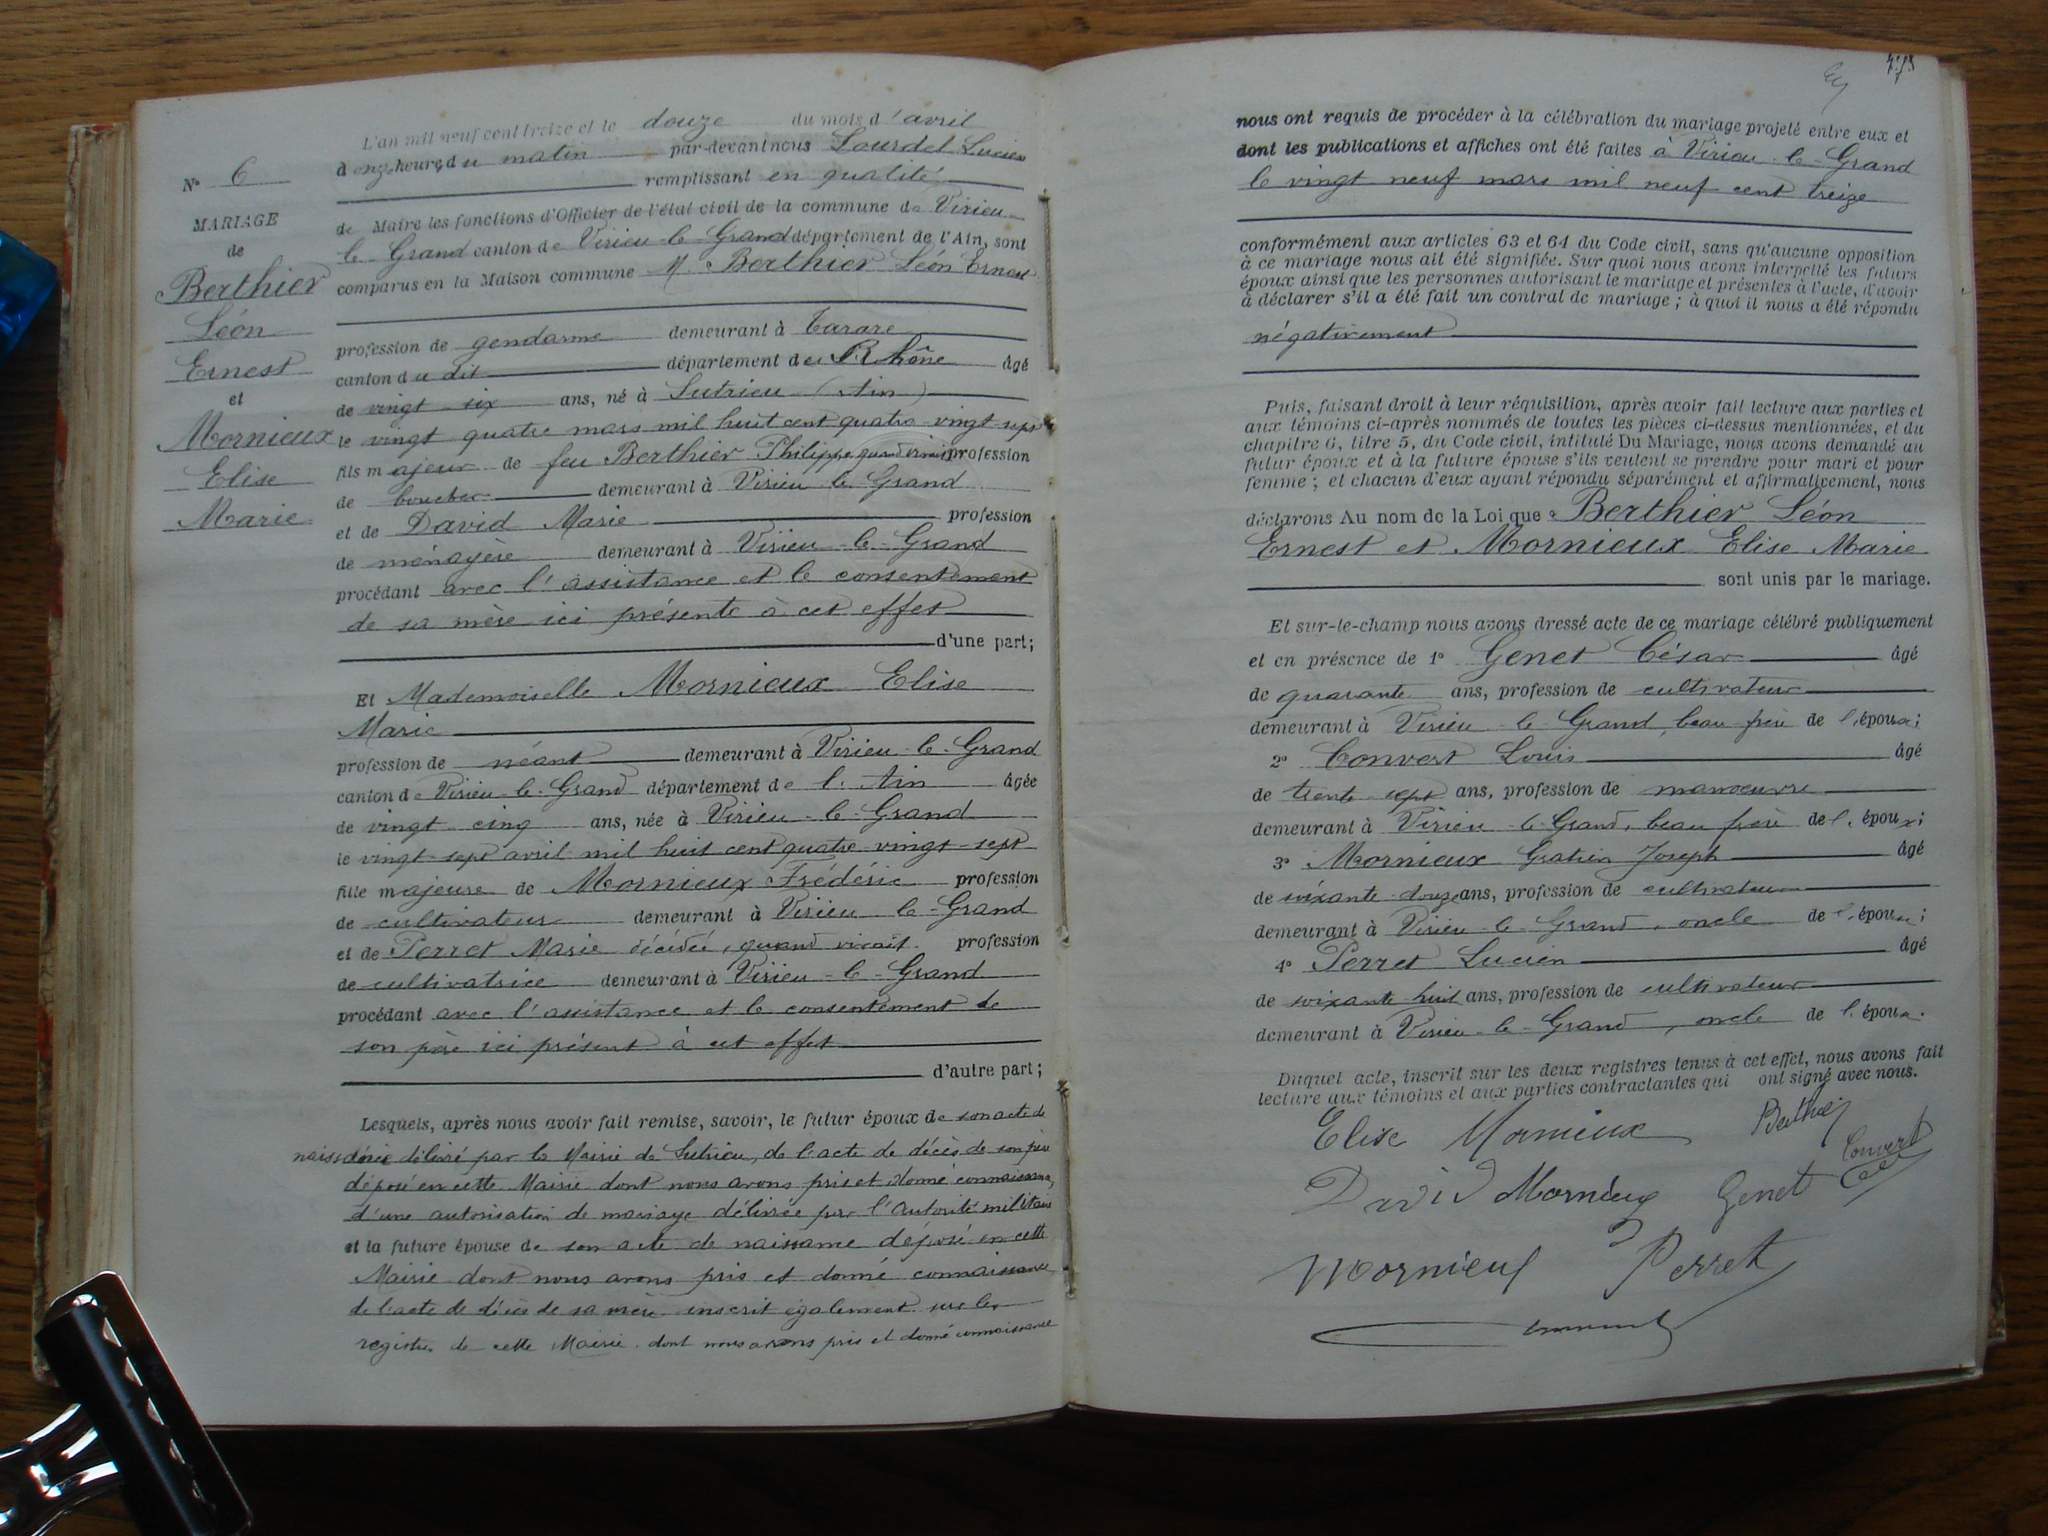 L'an mil neuf cent treize et le douze du mois d'avril
à onze heures du matin par-devant nous Lourdel Lucien
remplissant en qualité
de Maire les fonctions d'Officier de l'état civil de la commune de Virieu-
le-Grand canton de Virieu-le-Grand département de l'Ain, sont
comparus en la Maison commune M. Berthier Léon Ernest
profession de gendarme demeurant à Tarare
canton du dit département de Rhône âgé
de vingt-six ans, né à Sutrieu (Ain)
le vingt quatre mars mil huit cent quatre-vingt-sept
fils majeur de feu Berthier Philippe quand vivait profession
de boucher demeurant à Virieu-le-Grand
et de David Marie profession
de ménagère demeurant à Virieu-le-Grand
procédant avec l'assistance et le consentement
de sa mère ici présente à cet effet
d'une part;
Et Mademoiselle Mornieux Elise
Marie
profession de néant demeurant à Virieu-le-Grand
canton de Virieu-le-Grand département de l'Ain âgée
de vingt cinq ans, née à Virieu-le-Grand
le vingt-sept avril mil huit cent quatre-vingt-sept
fille majeure de Mornieux Frédéric profession
de cultivateur demeurant à Virieu-le-Grand
et de Perret Marie décédée, quand vivait profession
de cultivatrice demeurant à Virieu-le-Grand
procédant avec l'assistance et le consentement de
son père ici présent à cet effet
d'autre part;
Lesquels, après nous avoir fait remise, savoir, le futur époux de son acte de
naissance délivré par la Mairie de Sutrieu, de l'acte de décès de son père
déposé en cette Mairie dont nous avons pris et donné connaissance,
d'une autorisation de mariage délivrée par l'Autorité militaire
et la future épouse de son acte de naissance déposé en cette
Mairie dont nous avons pris et donné connaissance
de l'acte de décès de sa mère inscrit également sur les
registres de cette Mairie dont nous avons pris et donné connaissance
N° 6
MARIAGE
de
Berthier
Léon
Ernest
et
Mornieux
Elise
Marie
nous ont requis de procéder à la célébration du mariage projeté entre eux et
dont les publications et affiches ont été faites à Virieu-le-Grand
le vingt neuf mars mil neuf cent treize
conformément aux articles 63 et 64 du Code civil, sans qu'aucune opposition
à ce mariage nous ait été signifiée. Sur quoi nous avons interpellé les futurs
époux ainsi que les personnes autorisant le mariage et présentes à l'acte, d'avoir
à déclarer s'il a été fait un contrat de mariage; à quoi il nous a été répondu
négativement
Puis, faisant droit à leur réquisition, après avoir fait lecture aux parties et
aux témoins ci-après nommés de toutes les pièces ci-dessus mentionnées, et du
chapitre 6, titre 5, du Code civil, intitulé Du Mariage, nous avons demandé au
futur époux et à la future épouse s'ils veulent se prendre pour mari et pour
femme; et chacun d'eux ayant répondu séparément et affirmativement, nous
déclarons Au nom de la Loi que Berthier Léon
Ernest et Mornieux Elise Marie
sont unis par le mariage.
Et sur-le-champ nous avons dressé acte de ce mariage célébré publiquement
et en présence de 1° Genet César âgé
de quarante ans, profession de cultivateur
demeurant à Virieu-le-Grand, beau-frère de l'époux;
2° Convert Louis âgé
de trente-sept ans, profession de manoeuvre
demeurant à Virieu-le-Grand, beau frère de l'époux;
3° Mornieux Gratien Joseph âgé
de soixante-douze ans, profession de cultivateur
demeurant à Virieu-le-Grand, oncle de l'épouse;
4° Perret Lucien âgé
de soixante-huit ans, profession de cultivateur
demeurant à Virieu-le-Grand, oncle de l'épouse.
Duquel acte, inscrit sur les deux registres tenus à cet effet, nous avons fait
lecture aux témoins et aux parties contractantes qui ont signé avec nous.
Elise Mornieux Berthier
Convert
David Mornieux Genet
Mornieux Perret